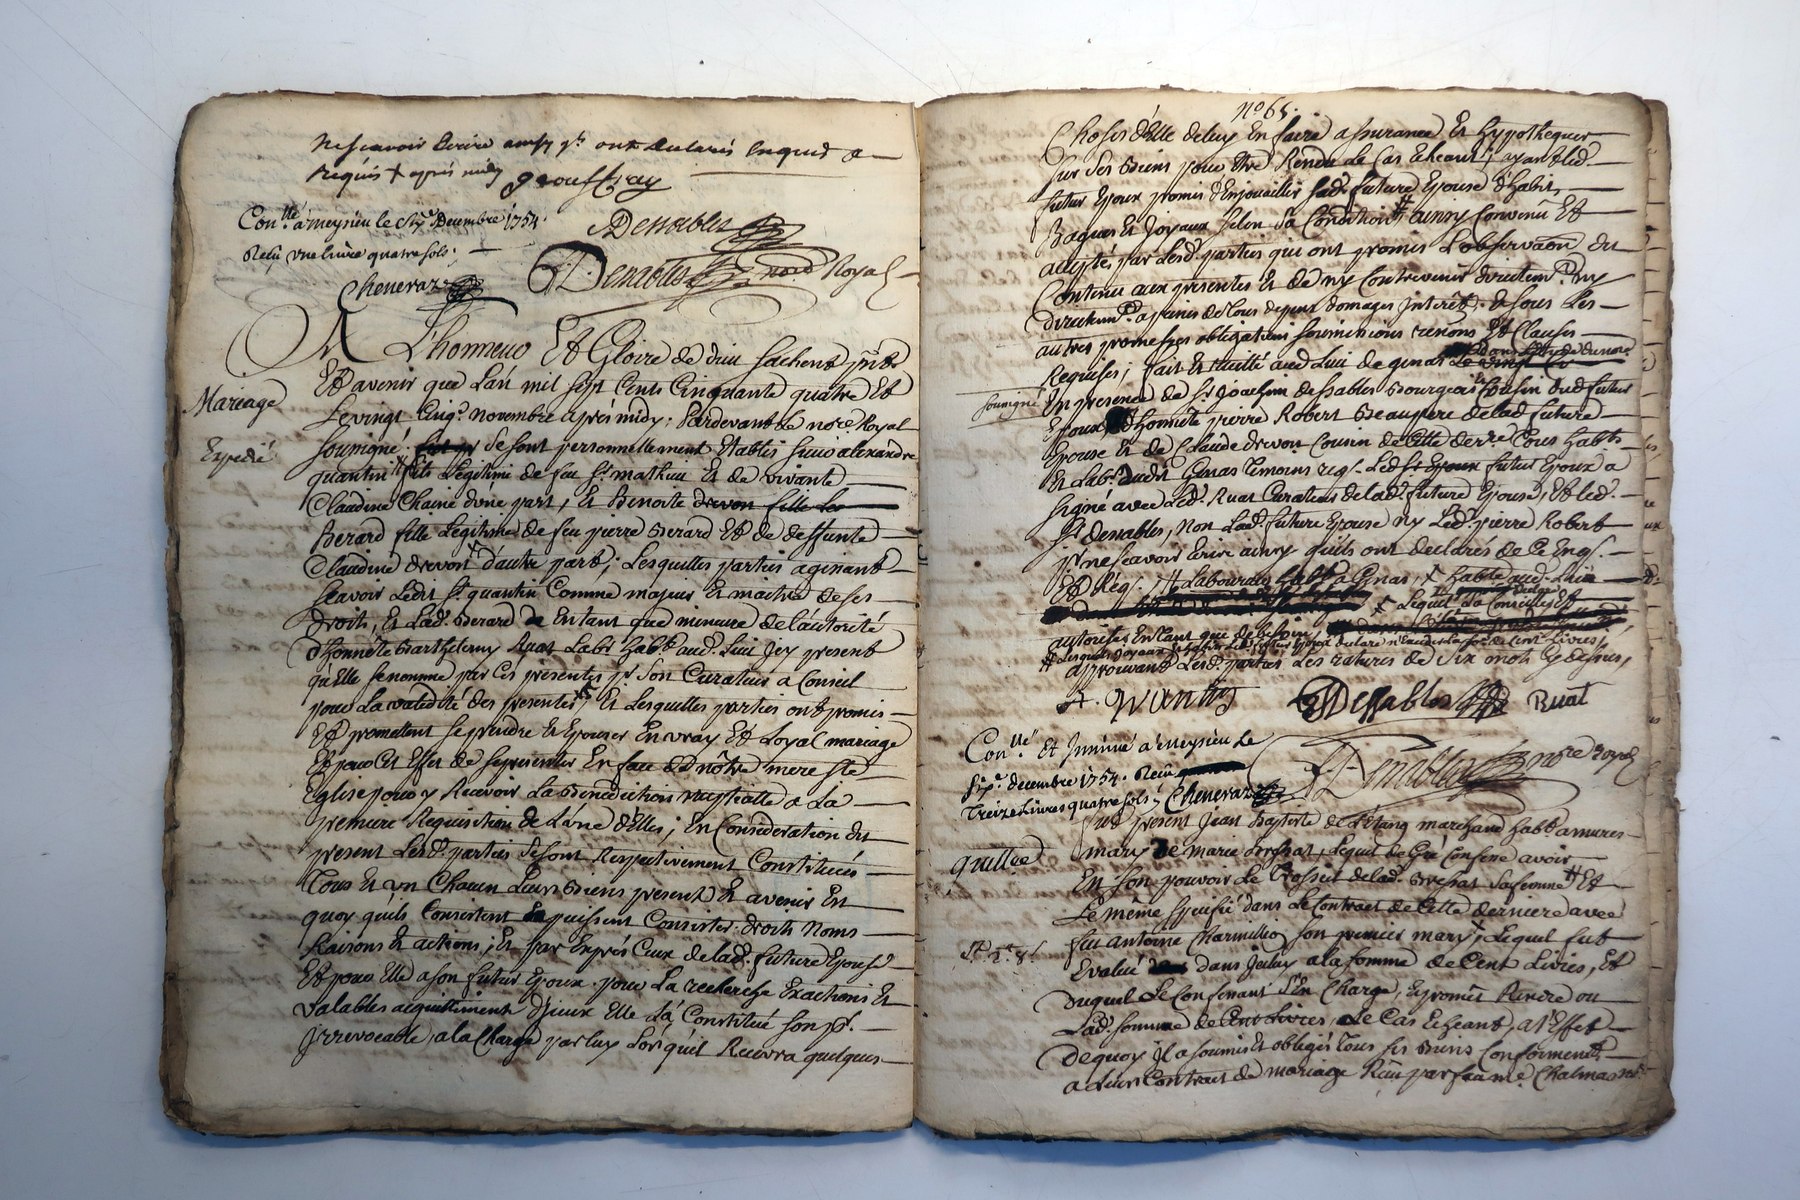 ne scavoir Ecrire ainsy qu'ils ont declarés Enquis &
Requis + après midy geouffray
Con.llé a meysieu le six.e Decembre 1754.
Reçu une livre quatre sols;
Cheneraz
Denables
Denables no.re Royal
A L'honneur Et Gloire de dieu sachent pñts
Mariage
Et avenir que L'an mil sept Cents Cinquante quatre Et
Le vingt Cinq.e novembre après midy; Pardevant Le no.re Royal
Expedié
soussigné: se sont personnellement Etablis sieur alexandre
quantin # fils Légitime de feu s.r mathieu Et de vivante
Claudine Chaine d'une part, Et Benoite drevon fille Le
Berard fille Légitime de feu pierre Berard Et de deffunte
Claudine drevon + d'autre part; Lesquelles parties agissant
scavoir Ledit s.r quantin Comme majeur Et maitre de ses
droits, Et Lad. Berard En tant que mineure de l'autorité
d'honnête Barthelemy Ruat Lab.r hab.t aud. Lieu Icy present
qu'Elle se nomme par Ces presentes p.r son Curateur a Conseil
pour La validité des presentes, Et Lesquelles parties ont promis
Et promettent se prendre Et Epouser En vray Et Loyal mariage
Et pour Cet Effet de se presenter En face de nôtre mere s.te
Eglise pour y Recevoir La Benediction nuptialle a La
premiere Requisition de L'une d'Elles; En Consideration du
present Lesd. parties se sont Respectivement Constitués
Tous Et un Chacun Leurs Biens present Et avenir En
quoy qu'ils Consistent puissent Consister droits Noms
Raisons Et actions; Et par Exprès Ceux de lad. future Epouse
Et pour Elle a son futur Epoux pour La recherche Exactions Et
valables acquittement d'jceux Elle L'a Constitué son pr.
jrrevocable, a la Charge par luy Lorsqu'il Recevra quelques
n.o 65.
Choses d'Elle de luy En faire assurance Et hypothequer
sur ses Biens pour Etre Rendu Le Cas Echeant; ayant led.
futur Epoux promis d'Enjouailler sad. future Epouse d'habits,
Bagues Et Joyaux selon sa Condition # ainsy Convenu Et
accepté par Lesd. parties qui ont promis L'observãon du
Contenu aux presentes Et de n'y Contrevenir directem.t ny
autres promesses obligations soumissions renons Et Clauses
Requises; fait Et recitté aud Lieu de genas
soussigné
En presence de s.r Joachin dessables Bourgeois Cousin dud futur
Epoux d'honnête pierre Robert Beaupere de lad future
Epouse Et de Claude drevon Cousin de Cette derre Tous habts
Et Lab.rs dud.t Genas Temoins req.s Led s.r Epoux futur Epoux a
signé avec Led. Ruat Curateur de lad. future Epouse, Et led.
s.r denables, Non Lad. future Epouse ny Led. pierre Robert
p.r ne scavoir Ecrire ainsy qu'ils ont declarés de Ce Enq.s
Et Réq.s, # Laboureur hab.t a Genas, + hab.te aud. Lieu
Lequel L'a Conseillé Et
autorisés En tant que de besoin
approuvant Lesd. parties Les ratures de six mots cy dessus,
A. quantin Dessables Ruat
Con.llé Et Jnsinué a meysieu Le
six.e decembre 1754. Reçu
Treize Livres quatre sols; Cheneraz
Denables no.re royal
fut present Jean Baptiste de L'Etang marchand hab.t a mures
quittce
mary de marie Bressat, Lequel de Gré Confesse avoir
En son pouvoir Le Trossel de lad. Bressat sa femme # Et
Le même specifié dans Le Contract de Cette derniere avec
feu antoine Marmillion son premier mary, Lequel fut
Evalué dans jceluy a la somme de Cent Livres, Et
duquel Le Confessant s'En Charge, Et promet Rendre ou
Lad. somme de Cent Livres, Le Cas Echeant, a l'Effet
de quoy jl a soumis Et obligé Tous ses Biens Conformement
a Leur Contract de mariage Reçu par feu me. Chalmas no.re